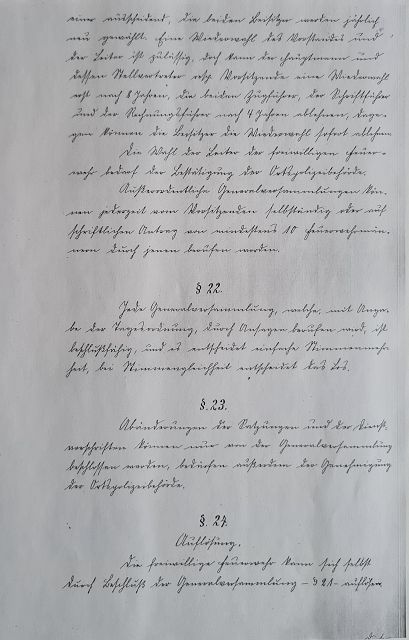 einer ausscheidend, die beiden Beisitzer werden jährlich
neu gewählt. Eine Wiederwahl des Vorstandes und
der Leiter ist zulässig, doch kann der Hauptmann und
dessen Stellvertreter resp. Vorsitzende eine Wiederwahl
erst nach 8 Jahren, die beiden Zugführer, der Schriftführer
und der Rechnungsführer nach 4 Jahren ablehnen, dage-
gen können die Beisitzer die Wiederwahl sofort ablehnen.
Die Wahl der Leiter der freiwilligen Feuer-
wehr bedarf der Bestätigung der Ortspolizeibehörde.
Außerordentliche Generalversammlungen kön-
nen jederzeit vom Vorsitzenden selbständig oder auf
schriftlichen Antrag von mindestens 10 Feuerwehrmän-
nern durch jenen berufen werden.
§ 22.
Jede Generalversammlung, welche, mit Anga-
be der Tagesordnung, durch Ansagen berufen wird, ist
beschlußfähig, und es entscheidet einfache Stimmenmehr-
heit, bei Stimmengleichheit entscheidet das Los.
§. 23.
Abänderungen der Satzungen und der Dienst-
vorschriften können nur von der Generalversammlung
beschlossen werden, bedürfen außerdem der Genehmigung
der Ortspolizeibehörde.
§. 24.
Auflösung.
Die freiwillige Feuerwehr kann sich selbst
durch Beschluß der Generalversammlung – § 21 – auflösen